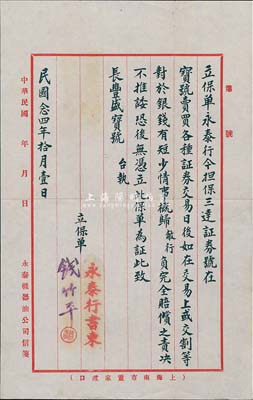 電 號
立保單永泰行今担保三達証券號在
寶號賣買各種証券交易日後如在交易上或交割等
對於銀錢有短少情事概歸敝行負完全賠償之責决
不推諉恐後無憑立此保單為証此致
長豐盛寶號 台執
永泰行書柬
立保單 錢竹平
民國念四年拾月壹日
中華民國 年 月 日
永泰機器油公司信箋
(上海南市董家渡口)